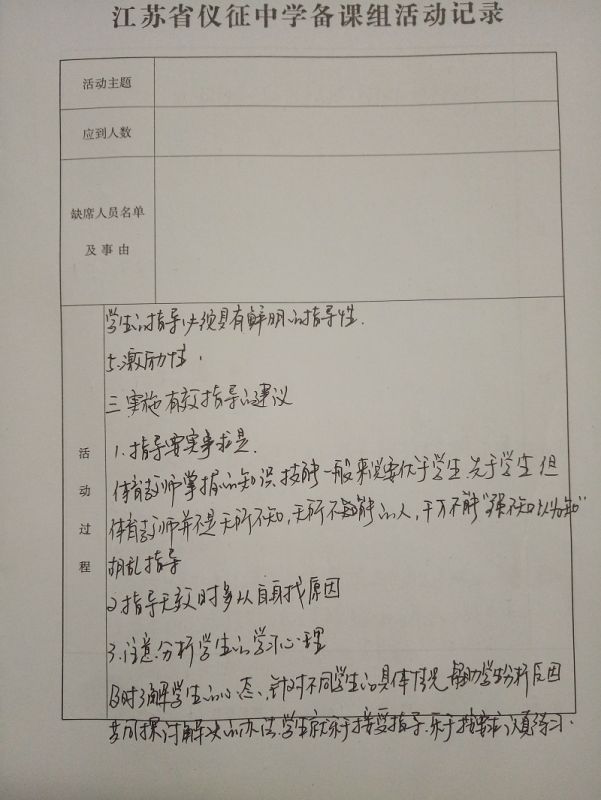 江苏省仪征中学备课组活动记录
活动主题
应到人数
缺席人员名单
及事由
活动过程
学生的指导必须具有鲜明的指导性.
5.激励性.
三 实施有效指导的建议
1.指导要实事求是.
体育教师掌握的知识、技能一般来说要优于学生 先于学生 但
体育教师并不是无所不知,无所不能的人,千万不能“强不知以为知”
胡乱指导
2.指导无效时多从自身找原因
3.注意分析学生的学习心理
及时了解学生的心态、针对不同学生的具体情况 帮助学生分析原因
共同探讨解决的办法.学生就乐于接受指导.乐于按要求认真练习.